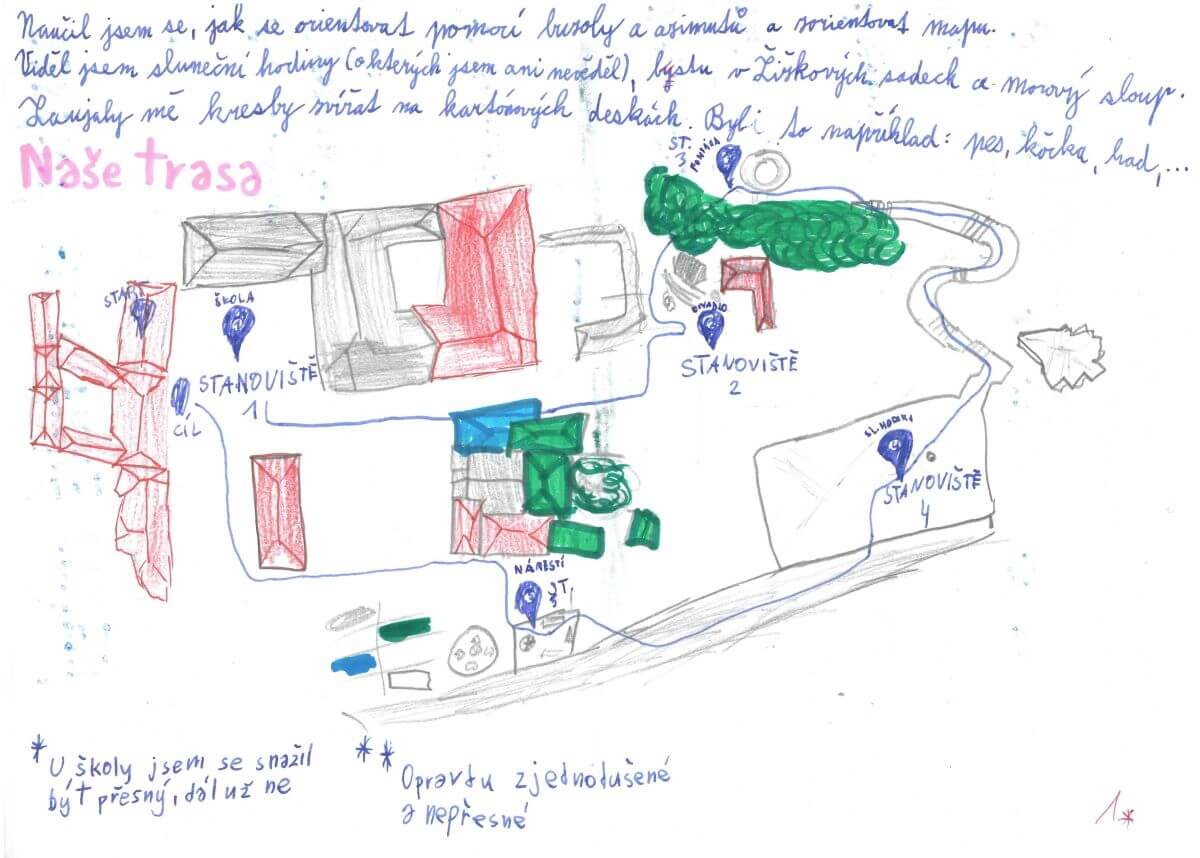 Naučil jsem se, jak se orientovat pomocí buzoly a azimutů a zorientovat mapu.
Viděl jsem sluneční hodiny (o kterých jsem ani nevěděl), bystu v Žižkových sadech a morový sloup.
Zaujaly mě kresby zvířat na kartónových deskách. Byli to například: pes, kočka, had,...
Naše trasa
ST.
3
START
ŠKOLA
STANOVIŠTĚ
1
CÍL
DIVADLO
STANOVIŠTĚ
2
SL. HODINY
STANOVIŠTĚ
4
NÁMĚSTÍ
ST.
5
* U školy jsem se snažil
být přesný, dál už ne
** Opravdu zjednodušené
a nepřesné
1*